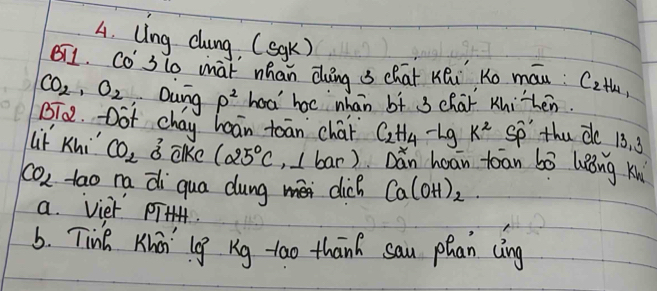 4. Ứng dụng (sgk)
BT1. Có 3 lọ mất nhãn đựng 3 chất khí ko màu: C2H4,
CO2, O2. Dùng p² hoá học nhận bt 3 chất khí trên.
BT2. Đốt cháy hoàn toàn chất C2H4 - lg k² sp' thu đc 13,3
lít khí CO2 ở đkc (25°C, 1 bar). Dẫn hoàn toàn bộ lượng khí
CO2 tạo ra đi qua dung dịch Ca(OH)2.
a. Viết PTHH.
b. Tính khối lg kg tạo thành sau phản ứng